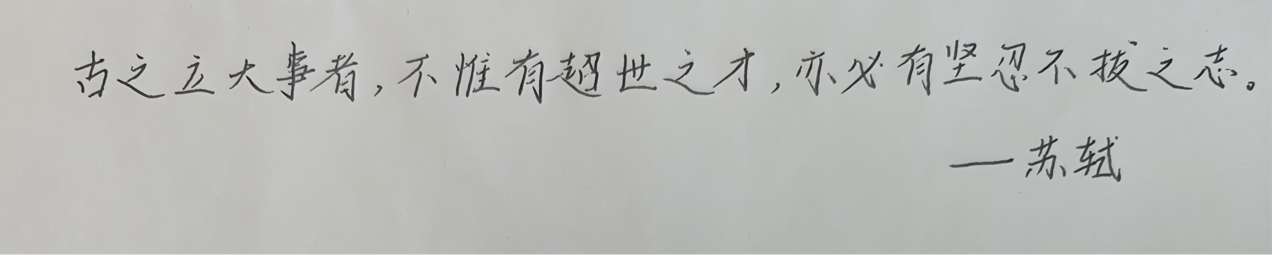 古之立大事者,不惟有超世之才,亦必有坚忍不拔之志。
——苏轼